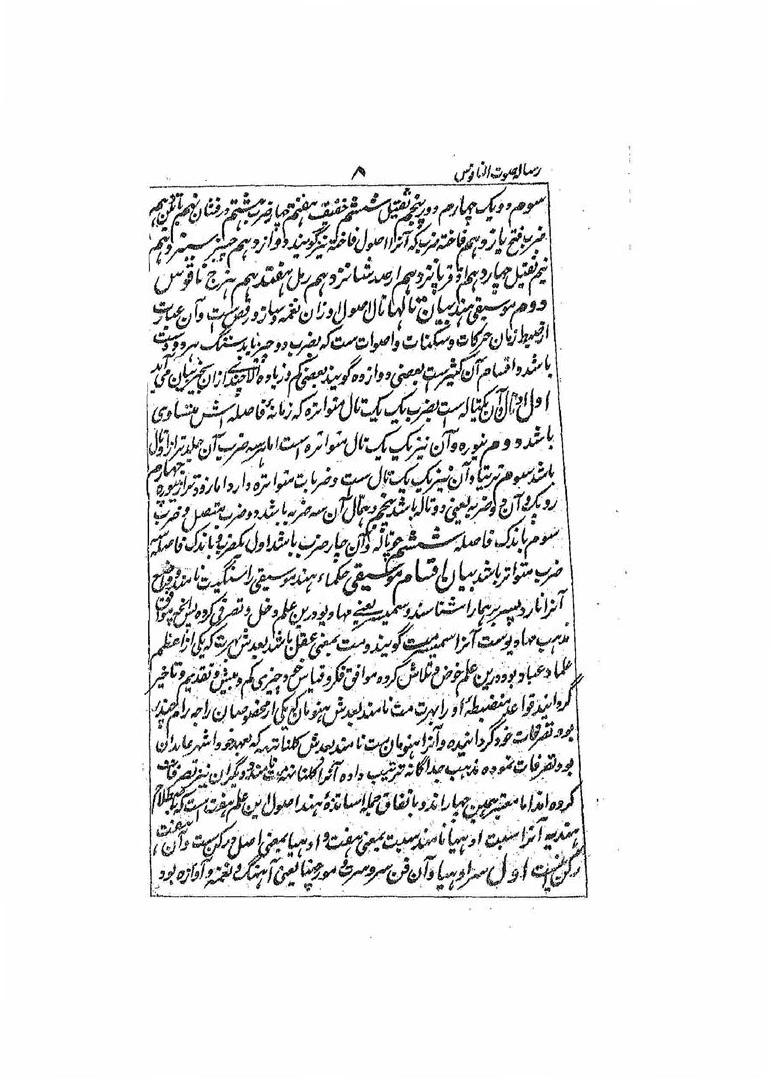 رساله صوت الناقوس ۸
سوم دو یک چهارم دور پنجم ثقیل ششم خفیف هفتم چهار ضرب هشتم ورفشان نهم
ضرب فتح یازدهم فاخته ضرب که آنرا اصول فاخته نیز گویند دوازدهم چنبر سیزدهم
نیم ثقیل چهاردهم اوفر پانزدهم ارصد شانزدهم رمل هفتدهم هزج ناقوس
دوم موسیقی هند بیان تالها تال اصول اوزان نغمه و ساز و رقص ست و آن عبارت
از ضبط زمان حرکات و سکنات و اصوات ست که بضرب دو چیز باید سنگ بود و دست
باشد و اقسام آن کثیرست بعضی دوازده گویند بعضی کم و زیاده الا چندی ازان بتحریر بیان می آید
اول تال آن یکتاله است بضرب یک یک تال متواتره که زمانهٔ فاصله اش متساوی
باشد دوم تیوره و آن نیز یک یک تال متواتره است اما سه ضرب آن جلدتر از تال
باشد سوم ترتیا و آن نیز یک یک تال ست و ضربات متواتره دارد اما زودتر از تیوره چهارم
روپک و آن دو ضربه یعنی دو تاله باشد پنجم دهمال آن سه ضربه باشد دو ضرب متصل و ضرب
سوم باندک فاصله ششم چوتاله و آن چار ضرب باشد اول یکضرب و باندک فاصله سه
ضرب متواتر باشد بیان اقسام موسیقی حکماء هند موسیقی را سنگیت نامند و واضع
آنرا نارد پسر برهما را شناسند و سمیسر یعنی مهادیو درین علم دخل و تصرفی کرده پس آنچه موافق
مذهب مهادیوست آنرا سمیسرمت گویند و مت بمعنی عقل باشد بعدش بهرت که یکی از اعظم
علما و عباد بود درین علم خوض و تلاش کرده موافق فکر و قیاس خود چیزی کم و بیش و تقدیم و تاخیر
گردانید قواعد منضبطهٔ او را بهرت مت نامند بعدش هنومان که یکی از مخصوصان راجه رام چندر
بود تصرفات خود گردانیده و آنرا هنومان مت نامند بعدش کلناتهه که بعهد خود اشهر عابدان
بود تصرفات نموده مذهب جداگانه ترتیب داده آنرا کلناتهه مت نامند و دیگران نیز تصرفات
کرده اند اما معتبر همین چهار اند و باتفاق جمله اساتذهٔ هند اصول این علم هفت ست که باصطلاح
هندیه آنرا سبت ادهیا نامند سبت بمعنی هفت و ادهیا بمعنی اصل و رکن ست و آن هفت
رکن اینست اول سر ادهیا و آن فن سر و سرت و مورچهنا یعنی آهنگ و نغمه و آوازه بود